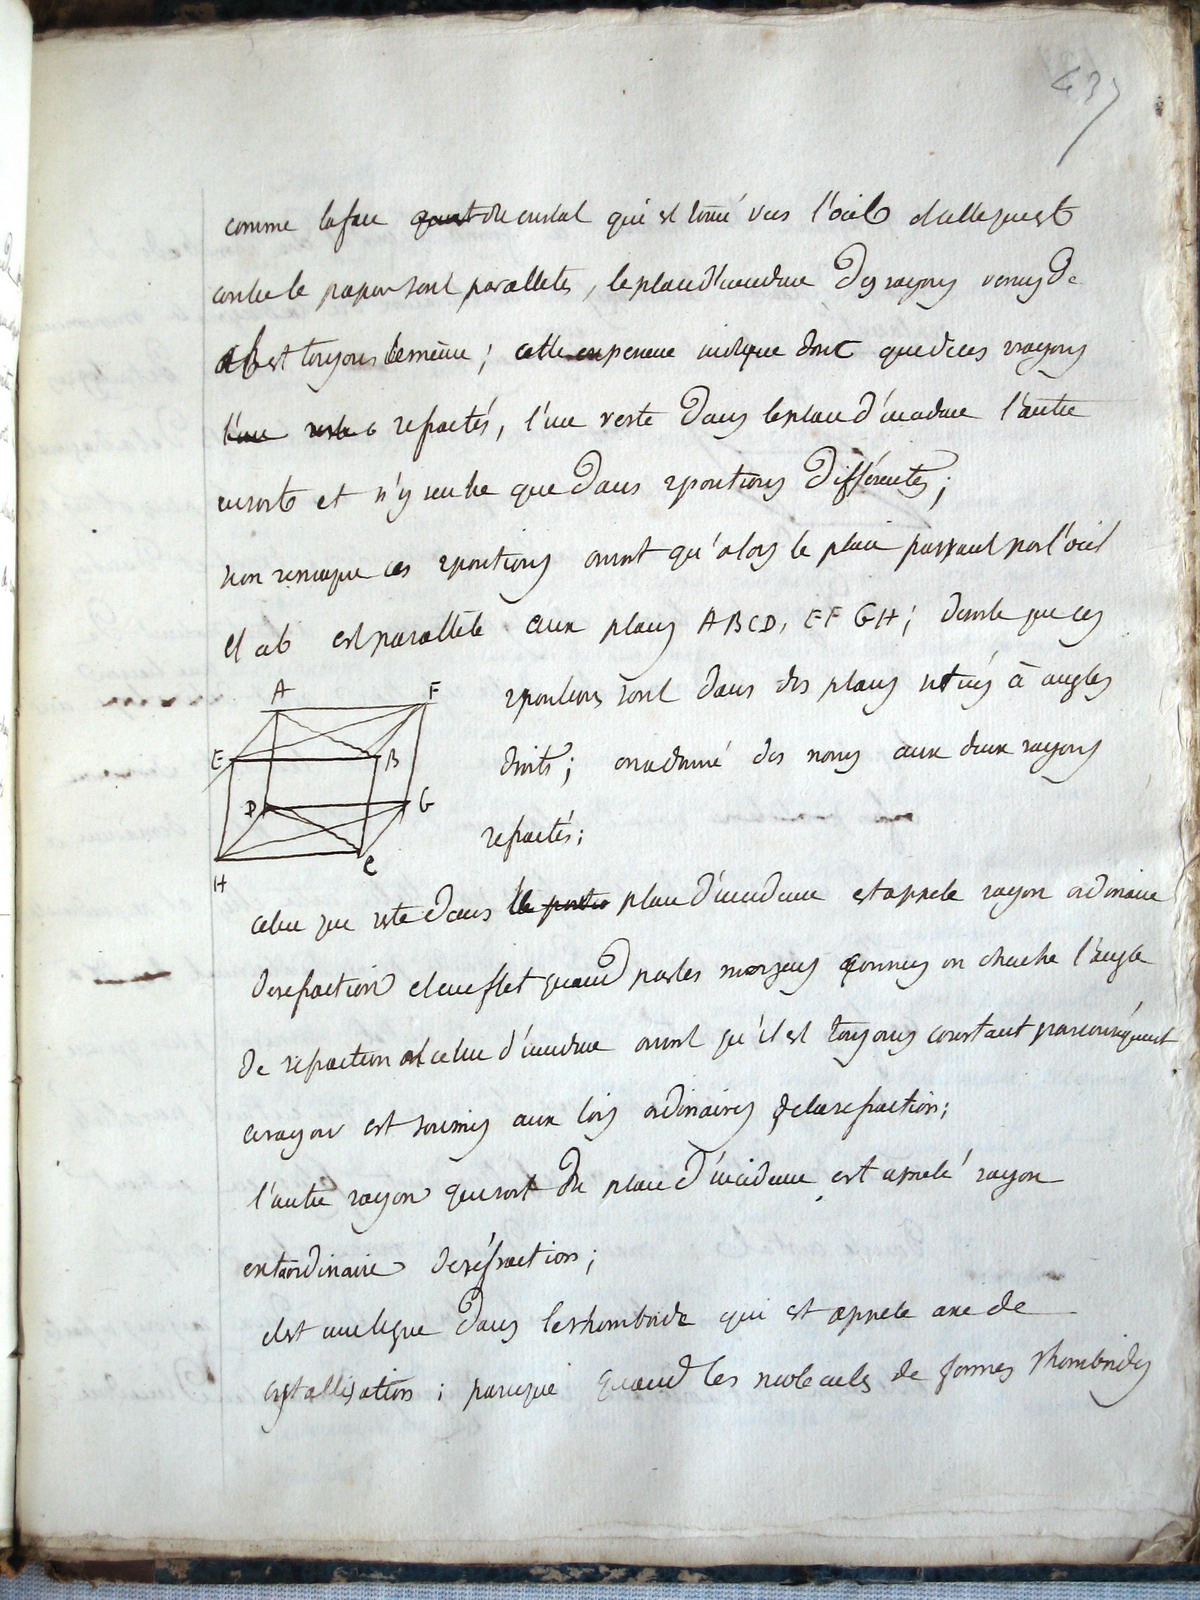 437
comme la face du cristal qui est tourné vers l'oeil et celle qui est
contre le papier sont paralleles, le plan d'incidence des rayons venus de
ab est toujours le même; cette experience indique donc que de ces rayons
l'un reste refractés, l'un reste dans le plan d'incidence l'autre
en sort et n'y rentre que dans 2 positions différentes;
si on remarque ces 2 positions on voit qu'alors le plan passant par l'oeil
et ab est parallele aux plans ABCD, EFGH; de sorte que ces
2 positions sont dans des plans situés à angles
droits; on a donné des noms aux deux rayons
refractés;
A F
E B
D G
H C
celui qui reste dans le plan d'incidence est appele rayon ordinaire
de refraction et en effet quand par les moyens connus on cherche l'angle
de refraction et celui d'incidence on voit qu'il est toujours constant par conséquent
ce rayon est soumis aux lois ordinaires de la refraction;
l'autre rayon qui sort du plan d'incidence est appelé rayon
extraordinaire de réfraction;
il est une ligne dans le rhomboide qui est appele axe de
cristallisation; parceque quand les molecules de formes rhomboides